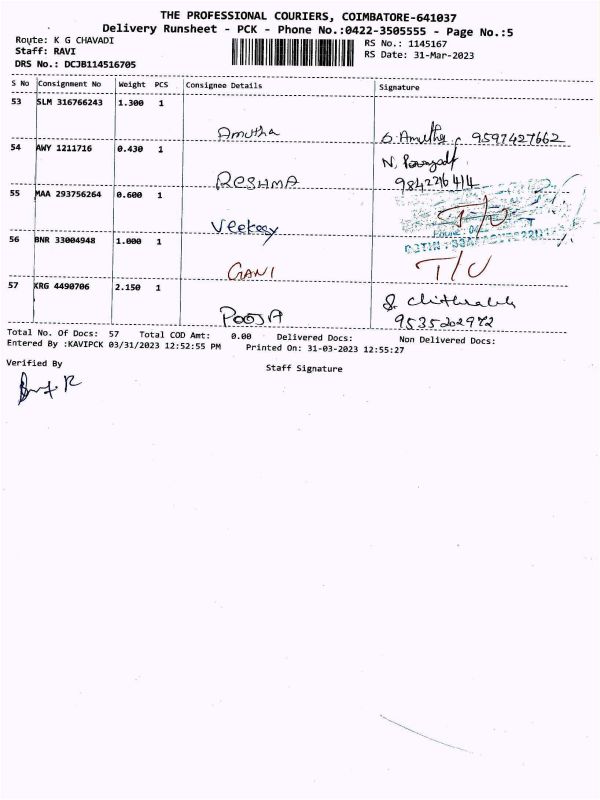 THE PROFESSIONAL COURIERS, COIMBATORE-641037
Delivery Runsheet - PCK - Phone No.:0422-3505555 - Page No.:5
Route: K G CHAVADI
RS No.: 1145167
Staff: RAVI
RS Date: 31-Mar-2023
DRS No.: DCJB114516705
S No Consignment No Weight PCS Consignee Details Signature
53 SLM 316766243 1.300 1
Amutha 9597427662
54 AWY 1211716 0.430 1
RESHMA
55 MAA 293756264 0.600 1
Veekay T/U
56 BNR 33004948 1.000 1
GANI T/U
57 KRG 4490706 2.150 1
POOJA 9535202972
Total No. Of Docs: 57 Total COD Amt: 0.00 Delivered Docs: Non Delivered Docs:
Entered By :KAVIPCK 03/31/2023 12:52:55 PM Printed On: 31-03-2023 12:55:27
Verified By
Staff Signature